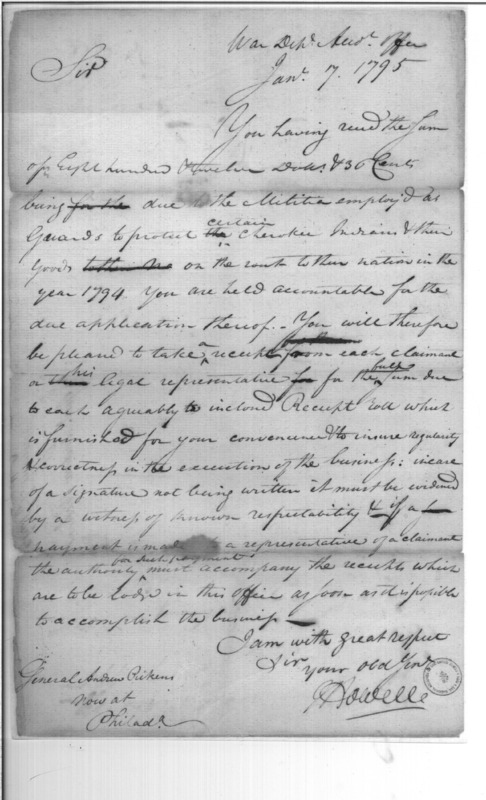 War Dept. Audr. Office
Jany. 7. 1795
Sir
You having recd the Sum
of Eight hundred & twelve Dolls. & 30 Cents
being for the due to the Militia employ'd as
Guards to protect the certain Cherokee Indians & their
Goods to their Na on the rout to their nation in the
year 1794. You are held accountable for the
due application thereof. - You will therefore
be pleased to take a receipt from each claimant
or his legal representative for for the sum due
to each agreably to inclosed Receipt Roll which
is furnished for your convenience & to insure regularity
& correctness in the execution of the business: in case
of a signature not being written it must be evidenced
by a witness of known respectability & if a
payment is made to a representative of a claimant
the authority for such payment must accompany the receipts which
are to be lodgd in this office as soon as it is possible
to accomplish the business -
I am with great respect
Sir
Your Obd Servt.
General Andrew Pickens
now at
Philada.
J Howell